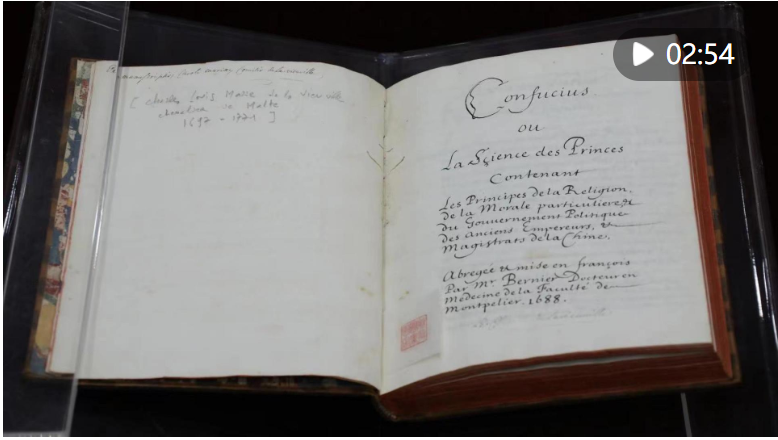 [ Charles Louis Marie de la Vieuville
chevalier de Malte
1697 - 1771 ]
Confucius
ou
La Sçience des Princes
Contenant
Les Principes de la Religion,
de la Morale particuliere et
du Gouvernement Politique
des anciens Empereurs, &
Magistrats de la Chine.
Abregée & mise en françois
Par Mr. Bernier Docteur en
Medecine de la Faculté de
Montpelier. 1688.
02:54